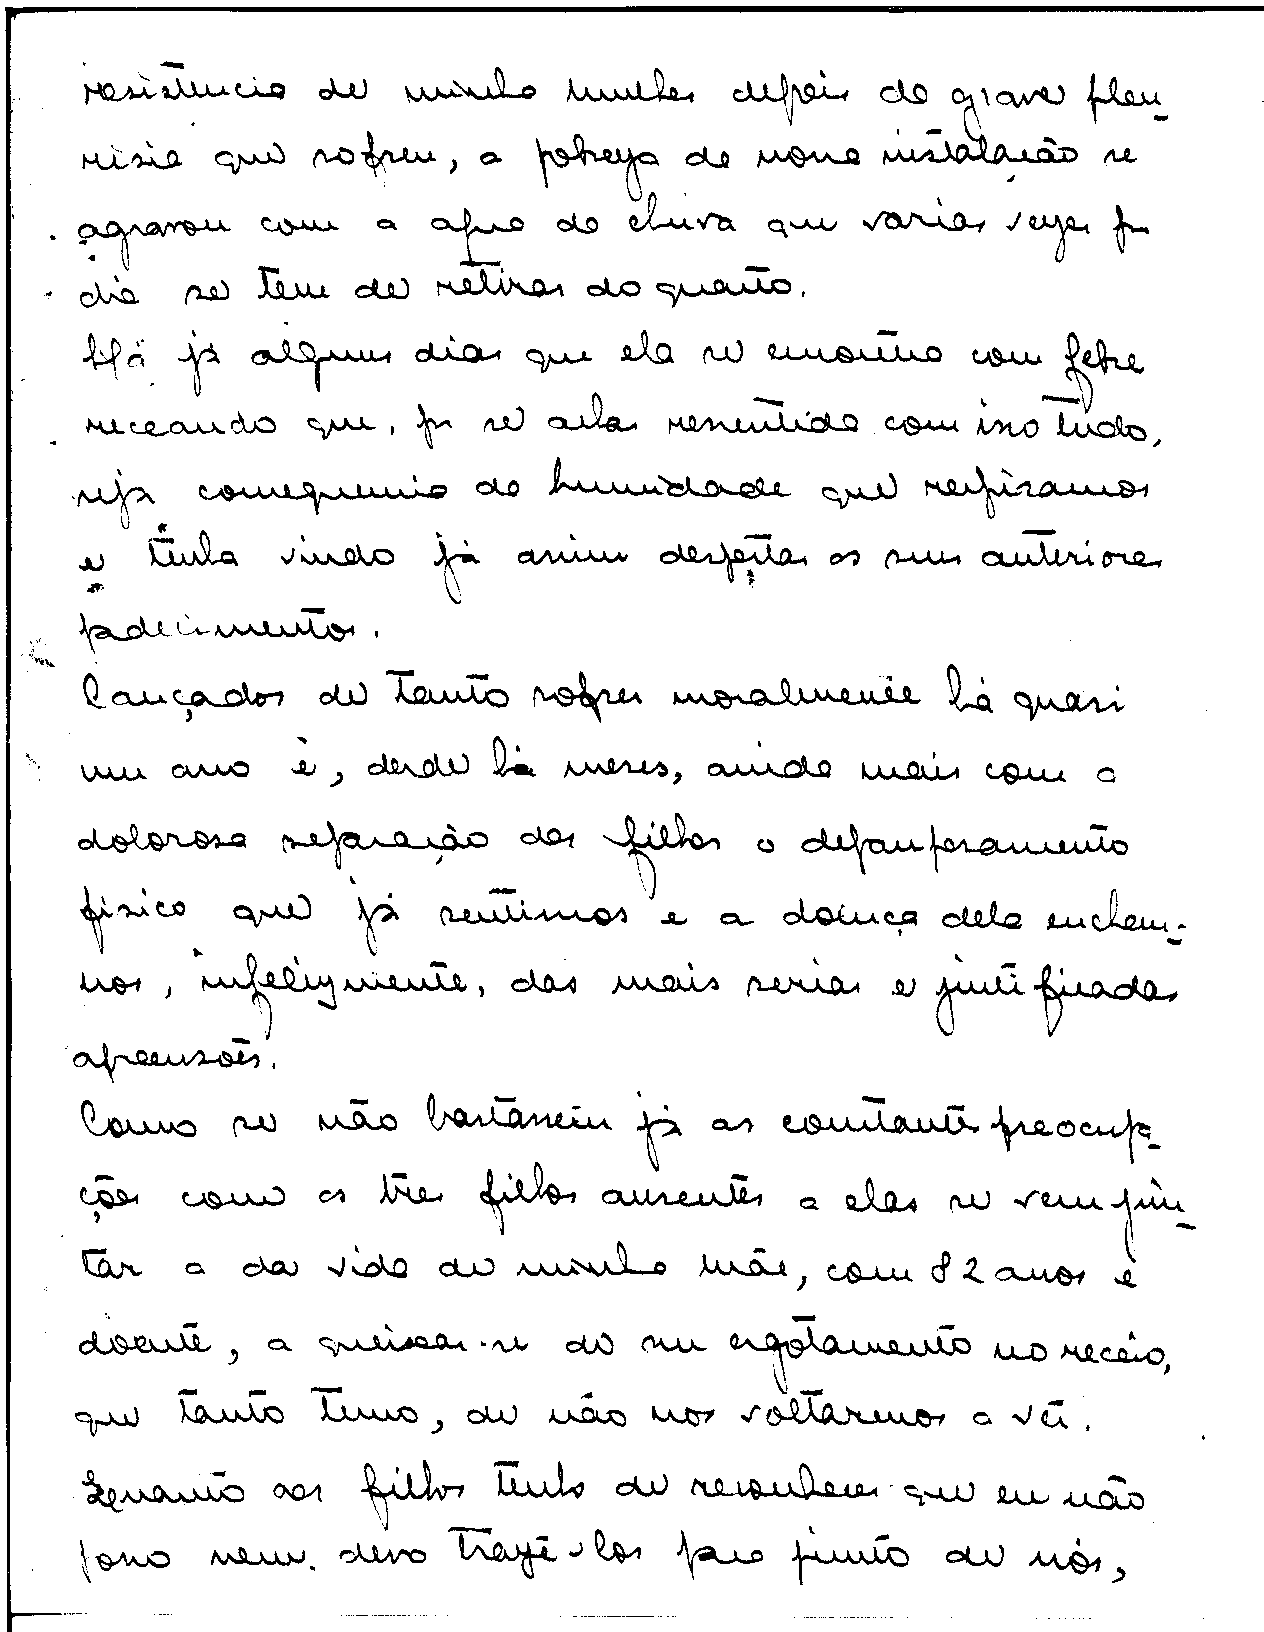 resistencia de minha mulher depois da grave pleu-
risia que sofreu, a pobreza de nossa instalação se
agravou com a agua da chuva que varias vezes por
dia se tem de retirar do quarto.
Há já alguns dias que ela se encontra com febre
receando que, por se achar resentida com isso tudo,
seja consequencia da humidade que respiramos
e tenha vindo já assim despertar os seus anteriores
padecimentos.
Cançados de tanto sofrer moralmente há quasi
um ano e, desde há meses, ainda mais com a
dolorosa separação dos filhos o desamparamento
fisico que já sentimos e a doença dela enchem-
nos, infelizmente, das mais serias e justificadas
apreensões.
Como se não bastassem já as constantes preocupa-
ções com os tres filhos ausentes a elas se vem jun-
tar a da vida de minha mãe, com 82 anos e
doente, a queixar-se do seu esgotamento no receio,
que tanto temo, de não nos voltarmos a vêr.
Quanto aos filhos tenho de reconhecer que eu não
posso nem devo trazê-los para junto de nós,